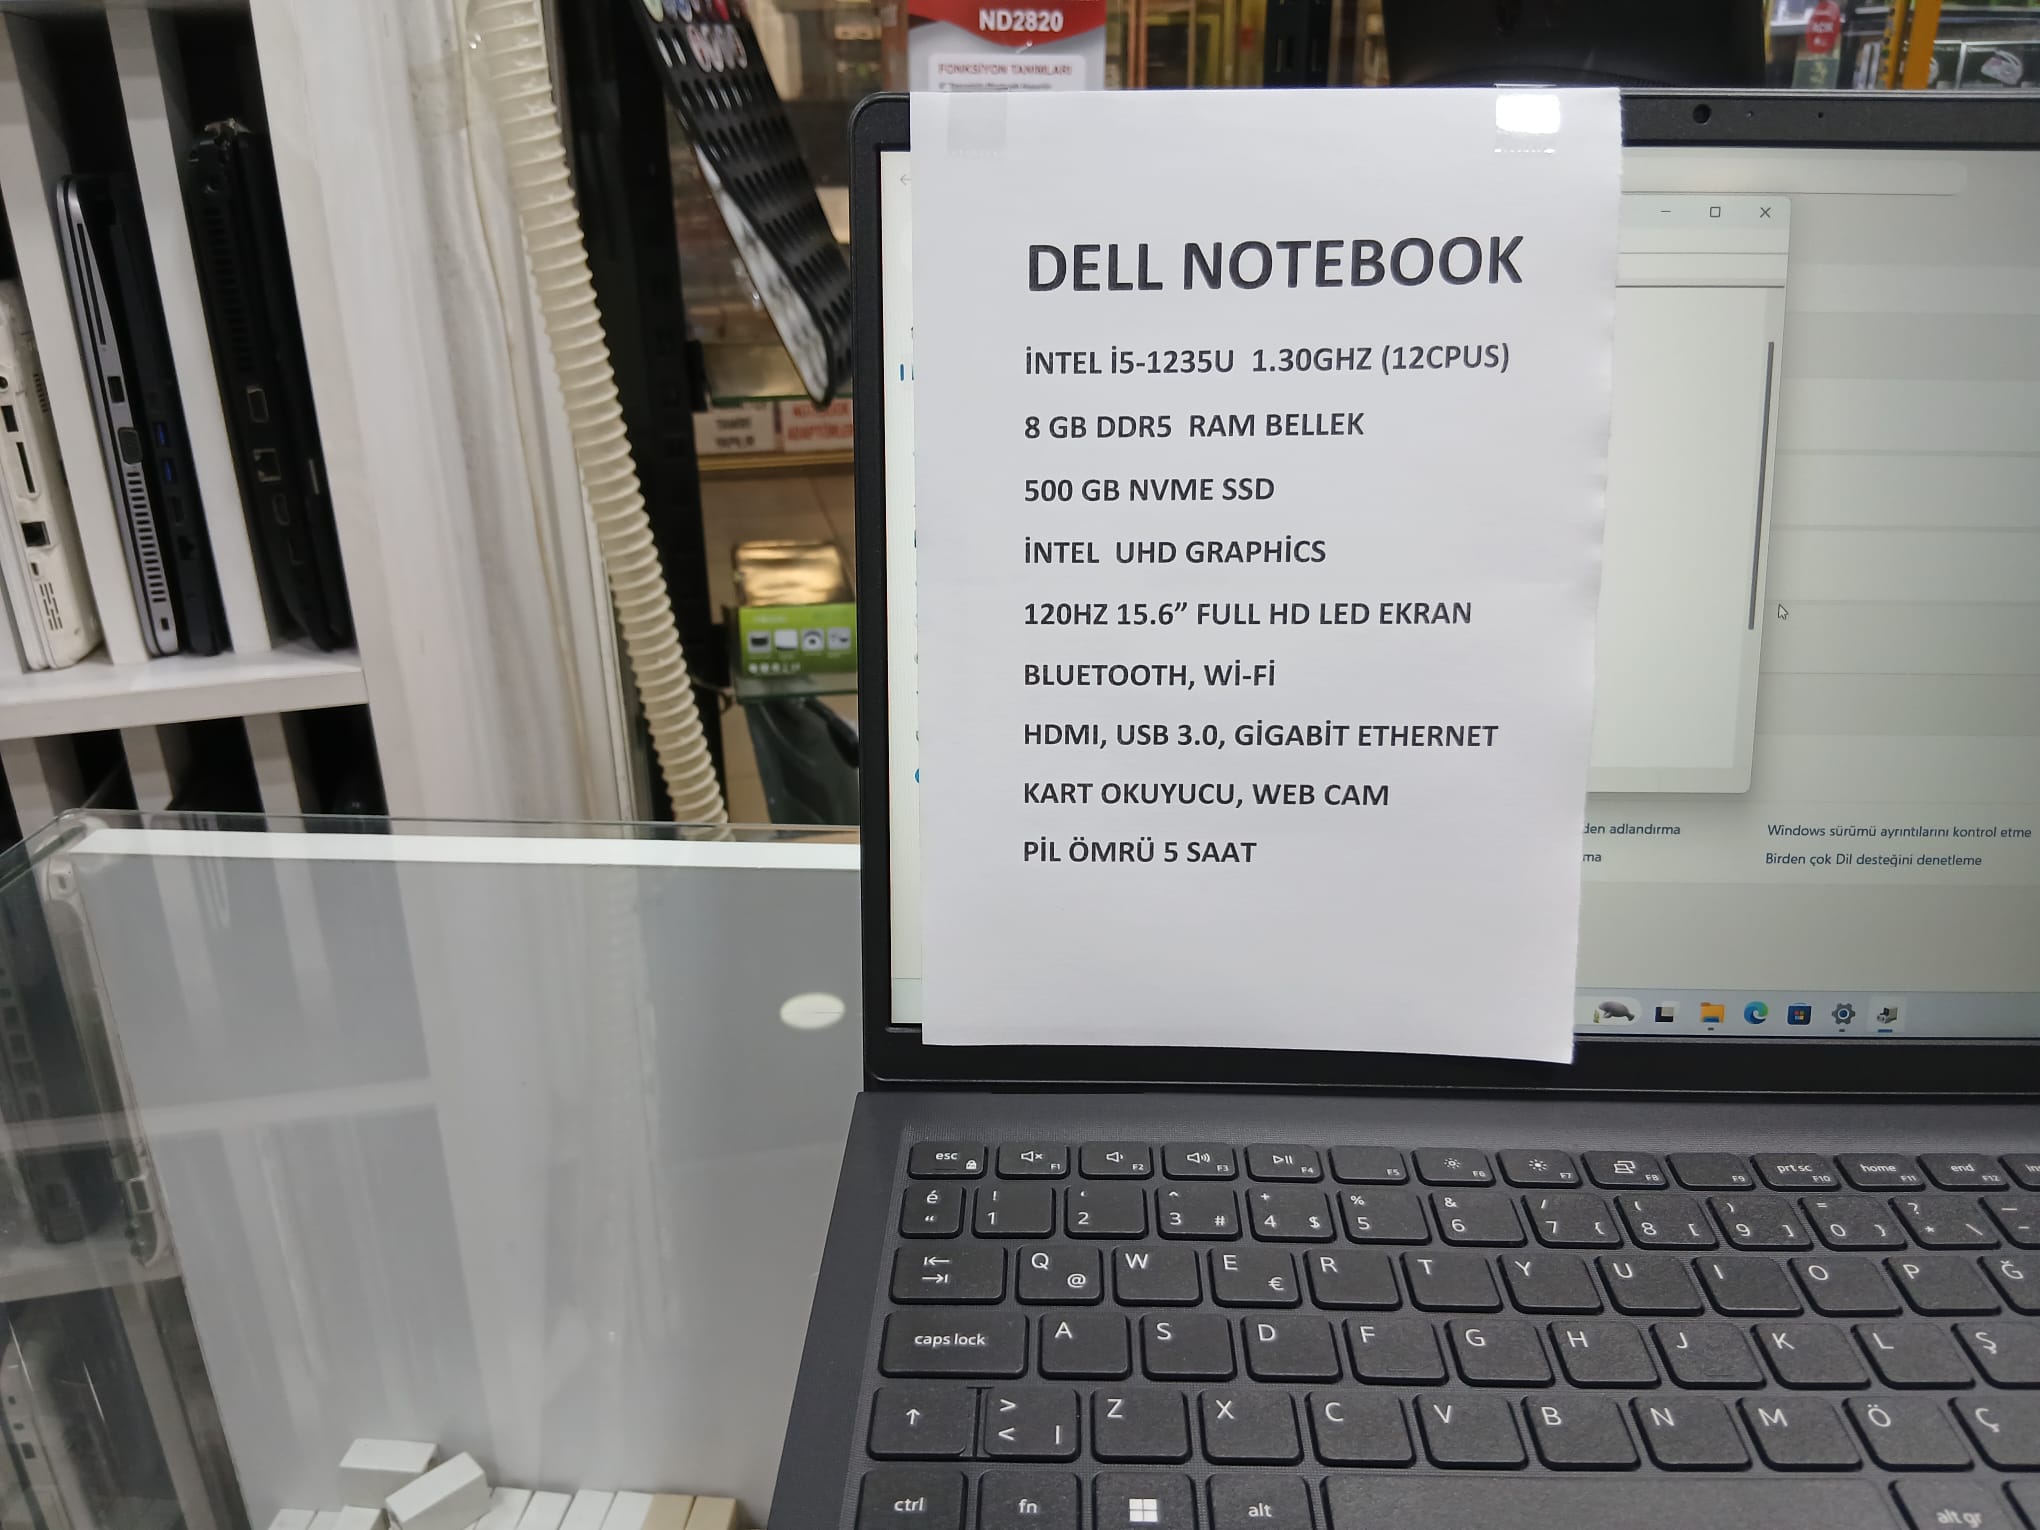 ND2820
FONKSİYON TANIMLARI
DELL NOTEBOOK
İNTEL İ5-1235U 1.30GHZ (12CPUS)
8 GB DDR5 RAM BELLEK
500 GB NVME SSD
İNTEL UHD GRAPHİCS
120HZ 15.6” FULL HD LED EKRAN
BLUETOOTH, Wİ-Fİ
HDMI, USB 3.0, GİGABİT ETHERNET
KART OKUYUCU, WEB CAM
PİL ÖMRÜ 5 SAAT
den adlandırma
Windows sürümü ayrıntılarını kontrol etme
ma
Birden çok Dil desteğini denetleme
esc F1 F2 F3 F4 F5 F6 F7 F8 F9 prt sc F10 home F11 end F12 ins
é “ ! 1 ‘ 2 ^ 3 # + 4 $ % 5 & 6 / 7 { ( 8 [ ) 9 ] = 0 } ? * \ _ -
Q @ W E € R T Y U I O P Ğ
caps lock A S D F G H J K L Ş
> < | Z X C V B N M Ö Ç
ctrl fn alt alt gr